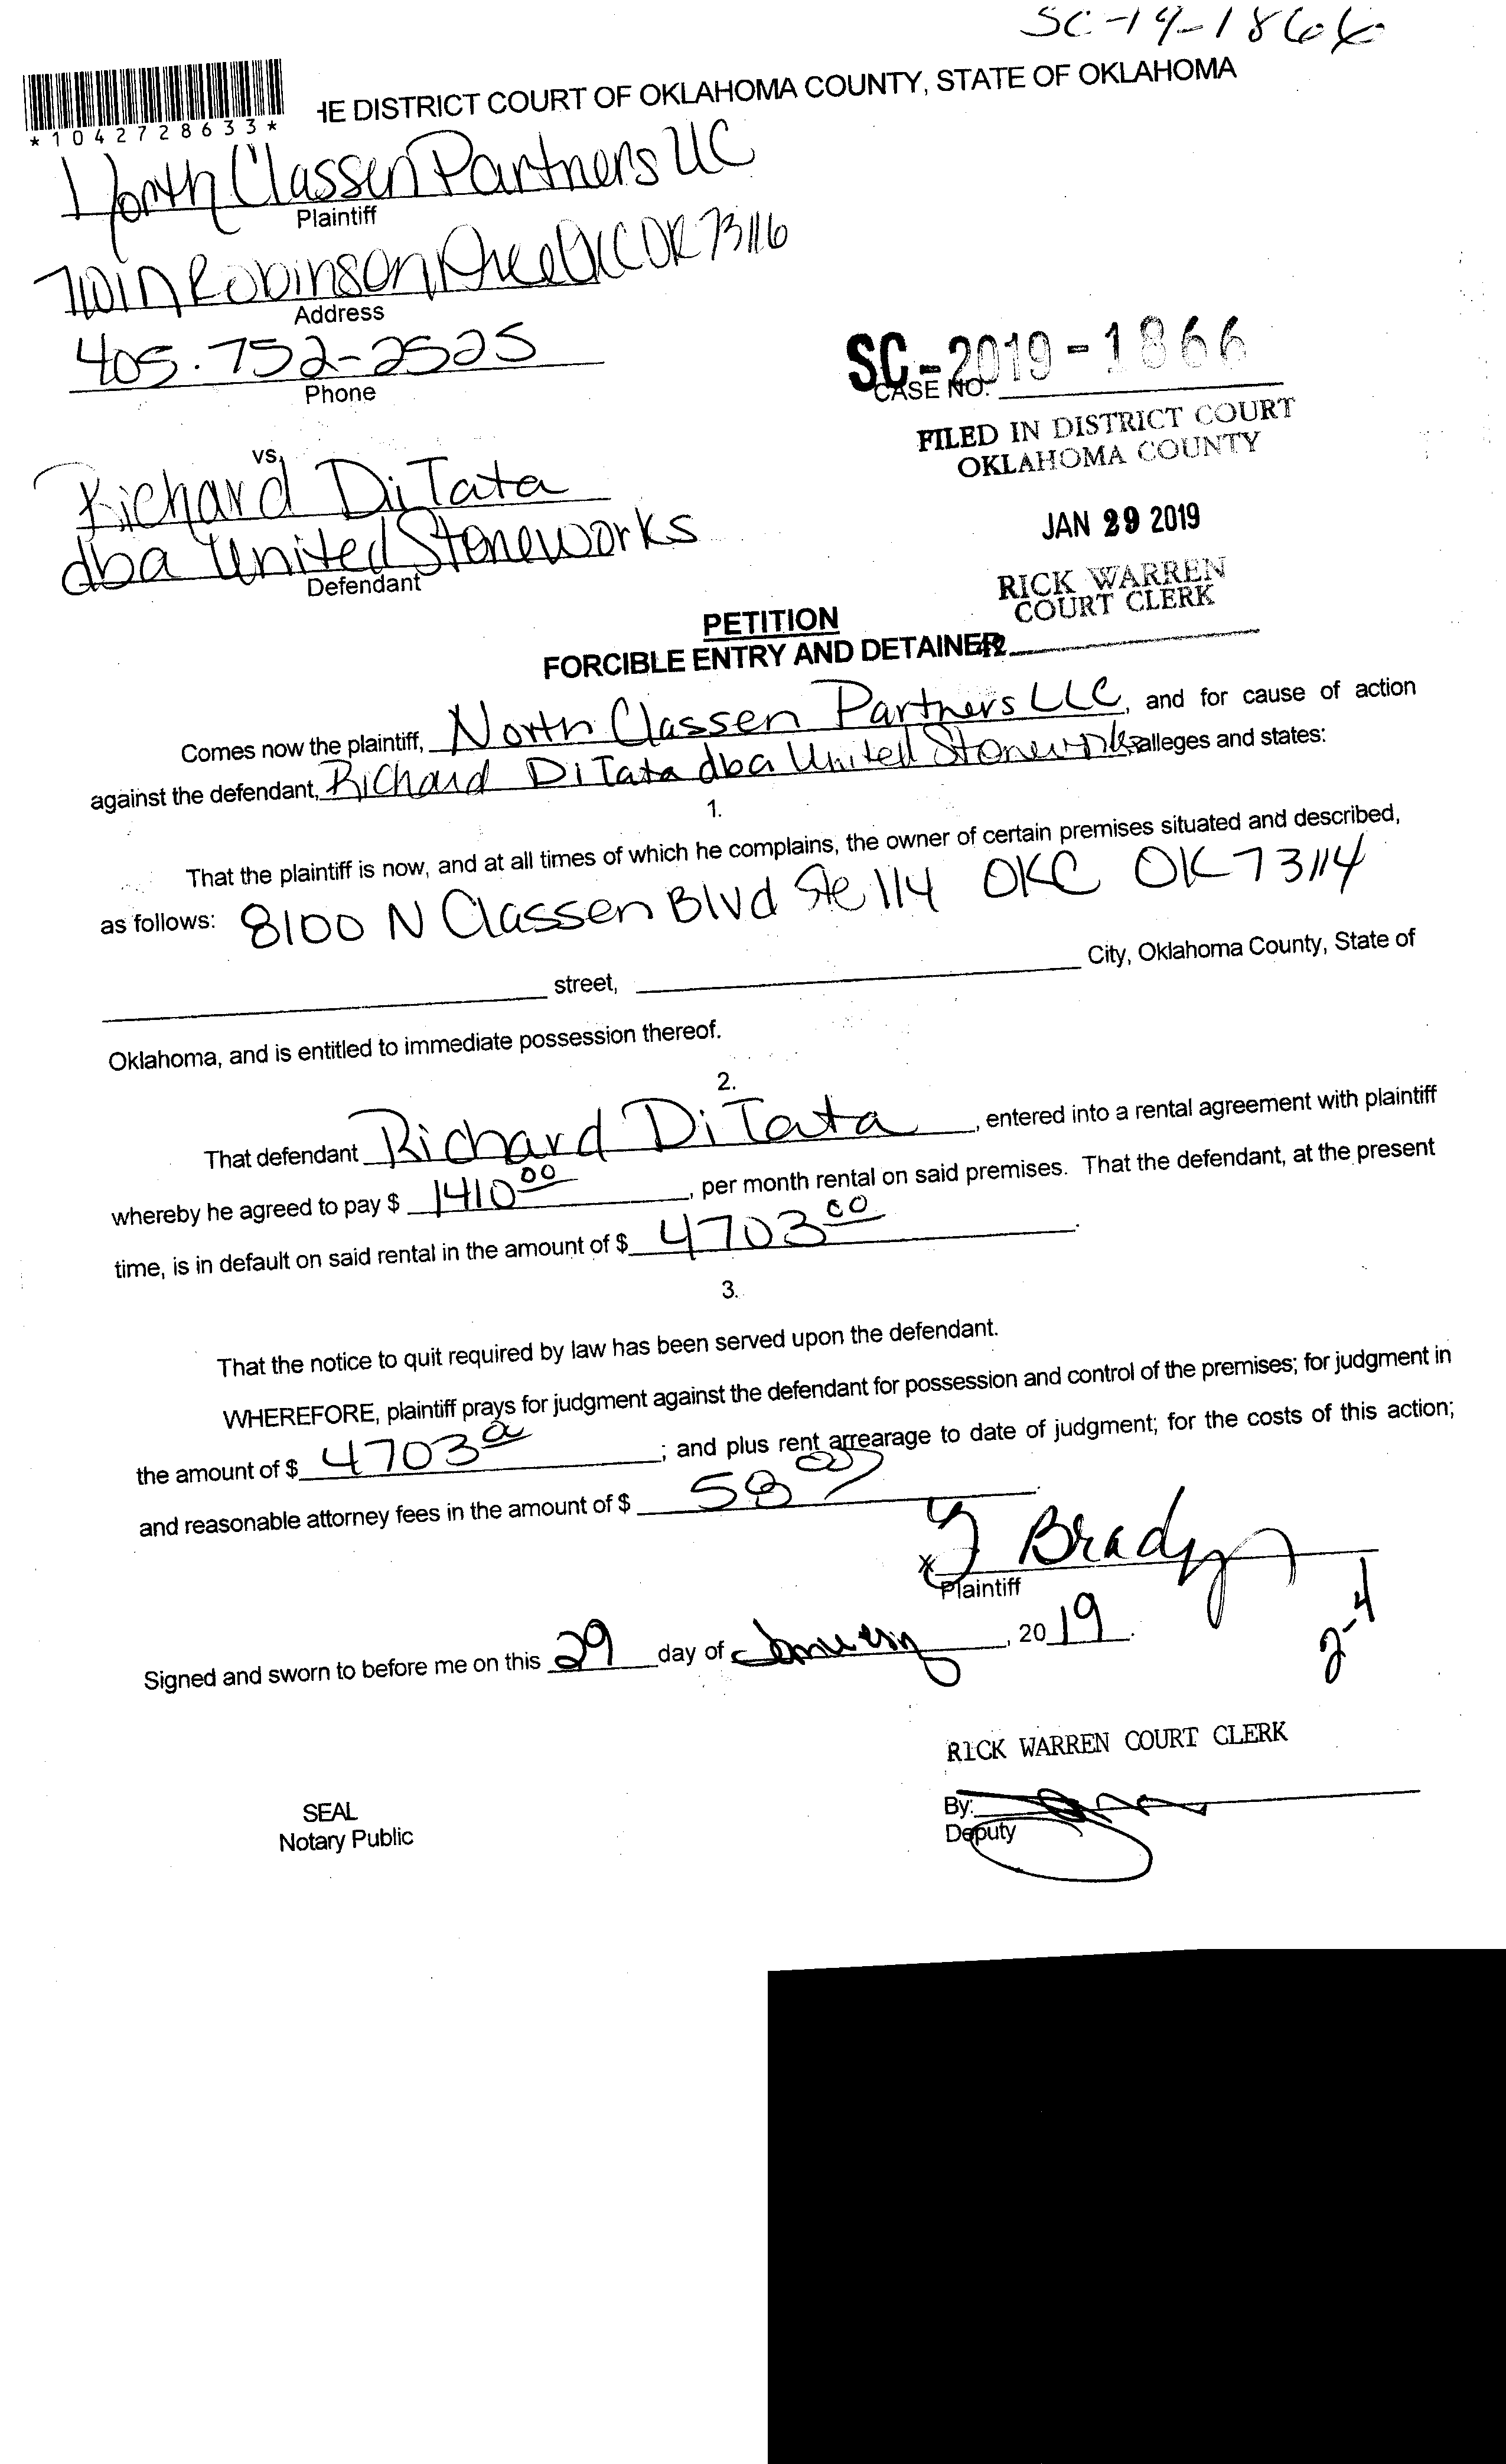 SC-19-1866
HE DISTRICT COURT OF OKLAHOMA COUNTY, STATE OF OKLAHOMA
*1042728633*
North Classen Partners LLC
Plaintiff
N Robinson OKC OK 73116
Address
405.752-2525
Phone
SC-2019-1866
CASE NO.
FILED IN DISTRICT COURT
OKLAHOMA COUNTY
vs.
Richard DiTata
JAN 29 2019
dba United Stoneworks
Defendant
RICK WARREN
COURT CLERK
PETITION
FORCIBLE ENTRY AND DETAINER
Comes now the plaintiff, North Classen Partners LLC, and for cause of action
against the defendant, Richard DiTata dba United Stoneworks alleges and states:
1.
That the plaintiff is now, and at all times of which he complains, the owner of certain premises situated and described,
as follows: 8100 N Classen Blvd Ste 114 OKC OK 73114
street, City, Oklahoma County, State of
Oklahoma, and is entitled to immediate possession thereof.
2.
That defendant Richard DiTata, entered into a rental agreement with plaintiff
whereby he agreed to pay $ 1410 00, per month rental on said premises. That the defendant, at the present
time, is in default on said rental in the amount of $ 4703 00.
3.
That the notice to quit required by law has been served upon the defendant.
WHEREFORE, plaintiff prays for judgment against the defendant for possession and control of the premises; for judgment in
the amount of $ 4703; and plus rent arrearage to date of judgment; for the costs of this action;
and reasonable attorney fees in the amount of $ 58.
x Brady
Plaintiff
Signed and sworn to before me on this 29 day of January, 2019.
2-4
RICK WARREN COURT CLERK
SEAL
Notary Public
By:
Deputy